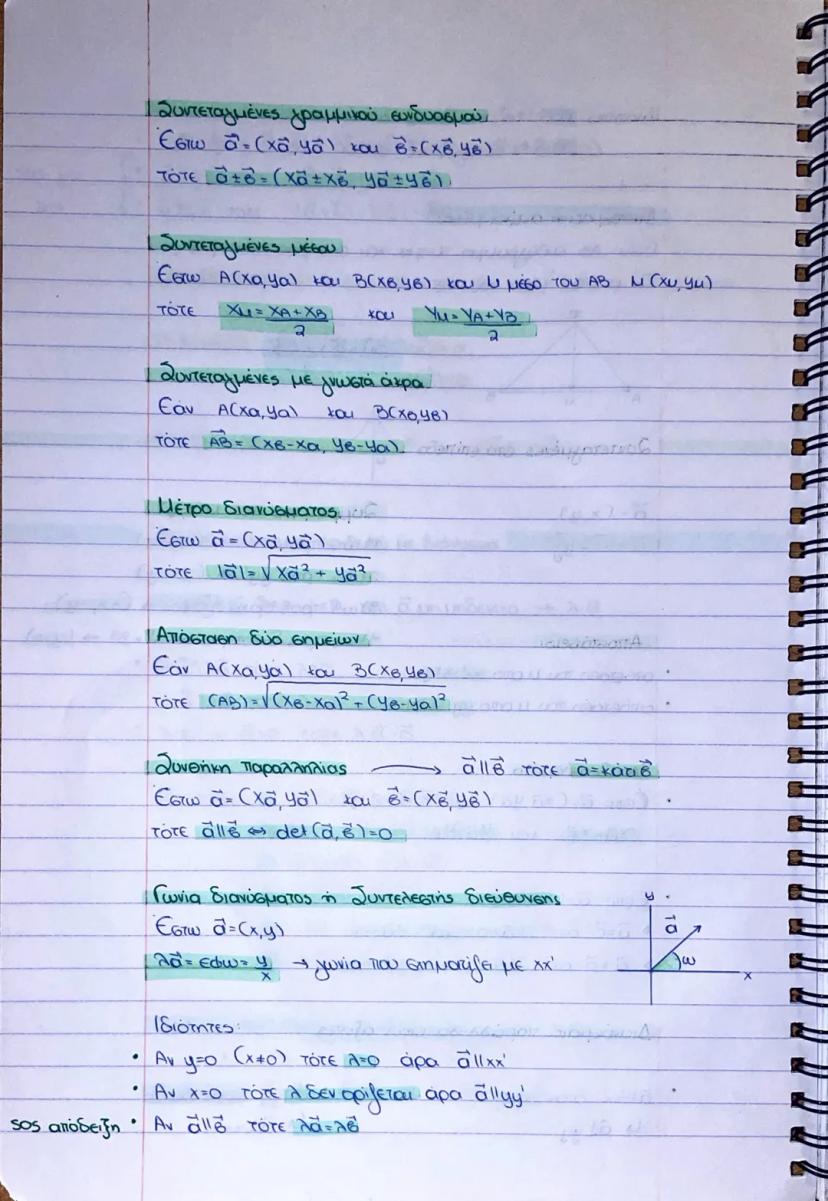 Συντεταγμένες γραμμικού συνδυασμού
Έστω a⃗=(xa⃗, ya⃗) και β⃗=(xβ⃗, yβ⃗)
τότε a⃗±β⃗=(xa⃗±xβ⃗, ya⃗±yβ⃗)
Συντεταγμένες μέσου
Έστω A(xa,ya) και B(xβ,yβ) και M μέσο του AB M(xμ,yμ)
τότε xμ=xA+xB/2 και yμ=yA+yB/2
Συντεταγμένες με γνωστά άκρα
Εάν A(xa,ya) και B(xβ,yβ)
τότε AB⃗=(xβ-xa, yβ-ya)
Μέτρο διανύσματος
Έστω a⃗=(xa⃗, ya⃗)
τότε |a⃗|=√xa⃗²+ya⃗²
Απόσταση δύο σημείων
Εάν A(xa,ya) και B(xβ,yβ)
τότε (AB)=√(xβ-xa)²+(yβ-ya)²
Συνθήκη παραλληλίας → a⃗||β⃗ τότε a⃗=κάτι β⃗
Έστω a⃗=(xa⃗, ya⃗) και β⃗=(xβ⃗, yβ⃗)
τότε a⃗||β⃗ ⇔ det(a⃗,β⃗)=0
Γωνία διανύσματος ή Συντελεστής διεύθυνσης
Έστω a⃗=(x,y)
λa⃗=εφω=y/x → γωνία που σχηματίζει με xx'
y
a⃗
ω
x
Ιδιότητες:
• Αν y=0 (x≠0) τότε λ=0 άρα a⃗||xx'
• Αν x=0 τότε λ δεν ορίζεται άρα a⃗||yy'
sos απόδειξη • Αν a⃗||β⃗ τότε λa⃗=λβ⃗